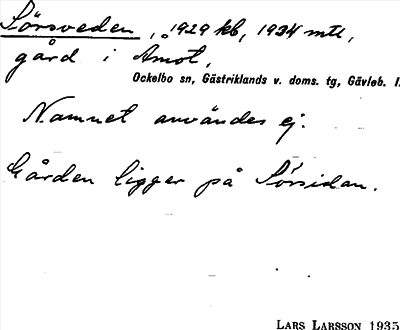 Sörsveden, 1929 kb, 1934 mtl,
gård i Åmot,
Ockelbo sn, Gästriklands v. doms. tg, Gävleb. l.
Namnet användes ej.
Gården ligger på Sörsidan.
LARS LARSSON 1935